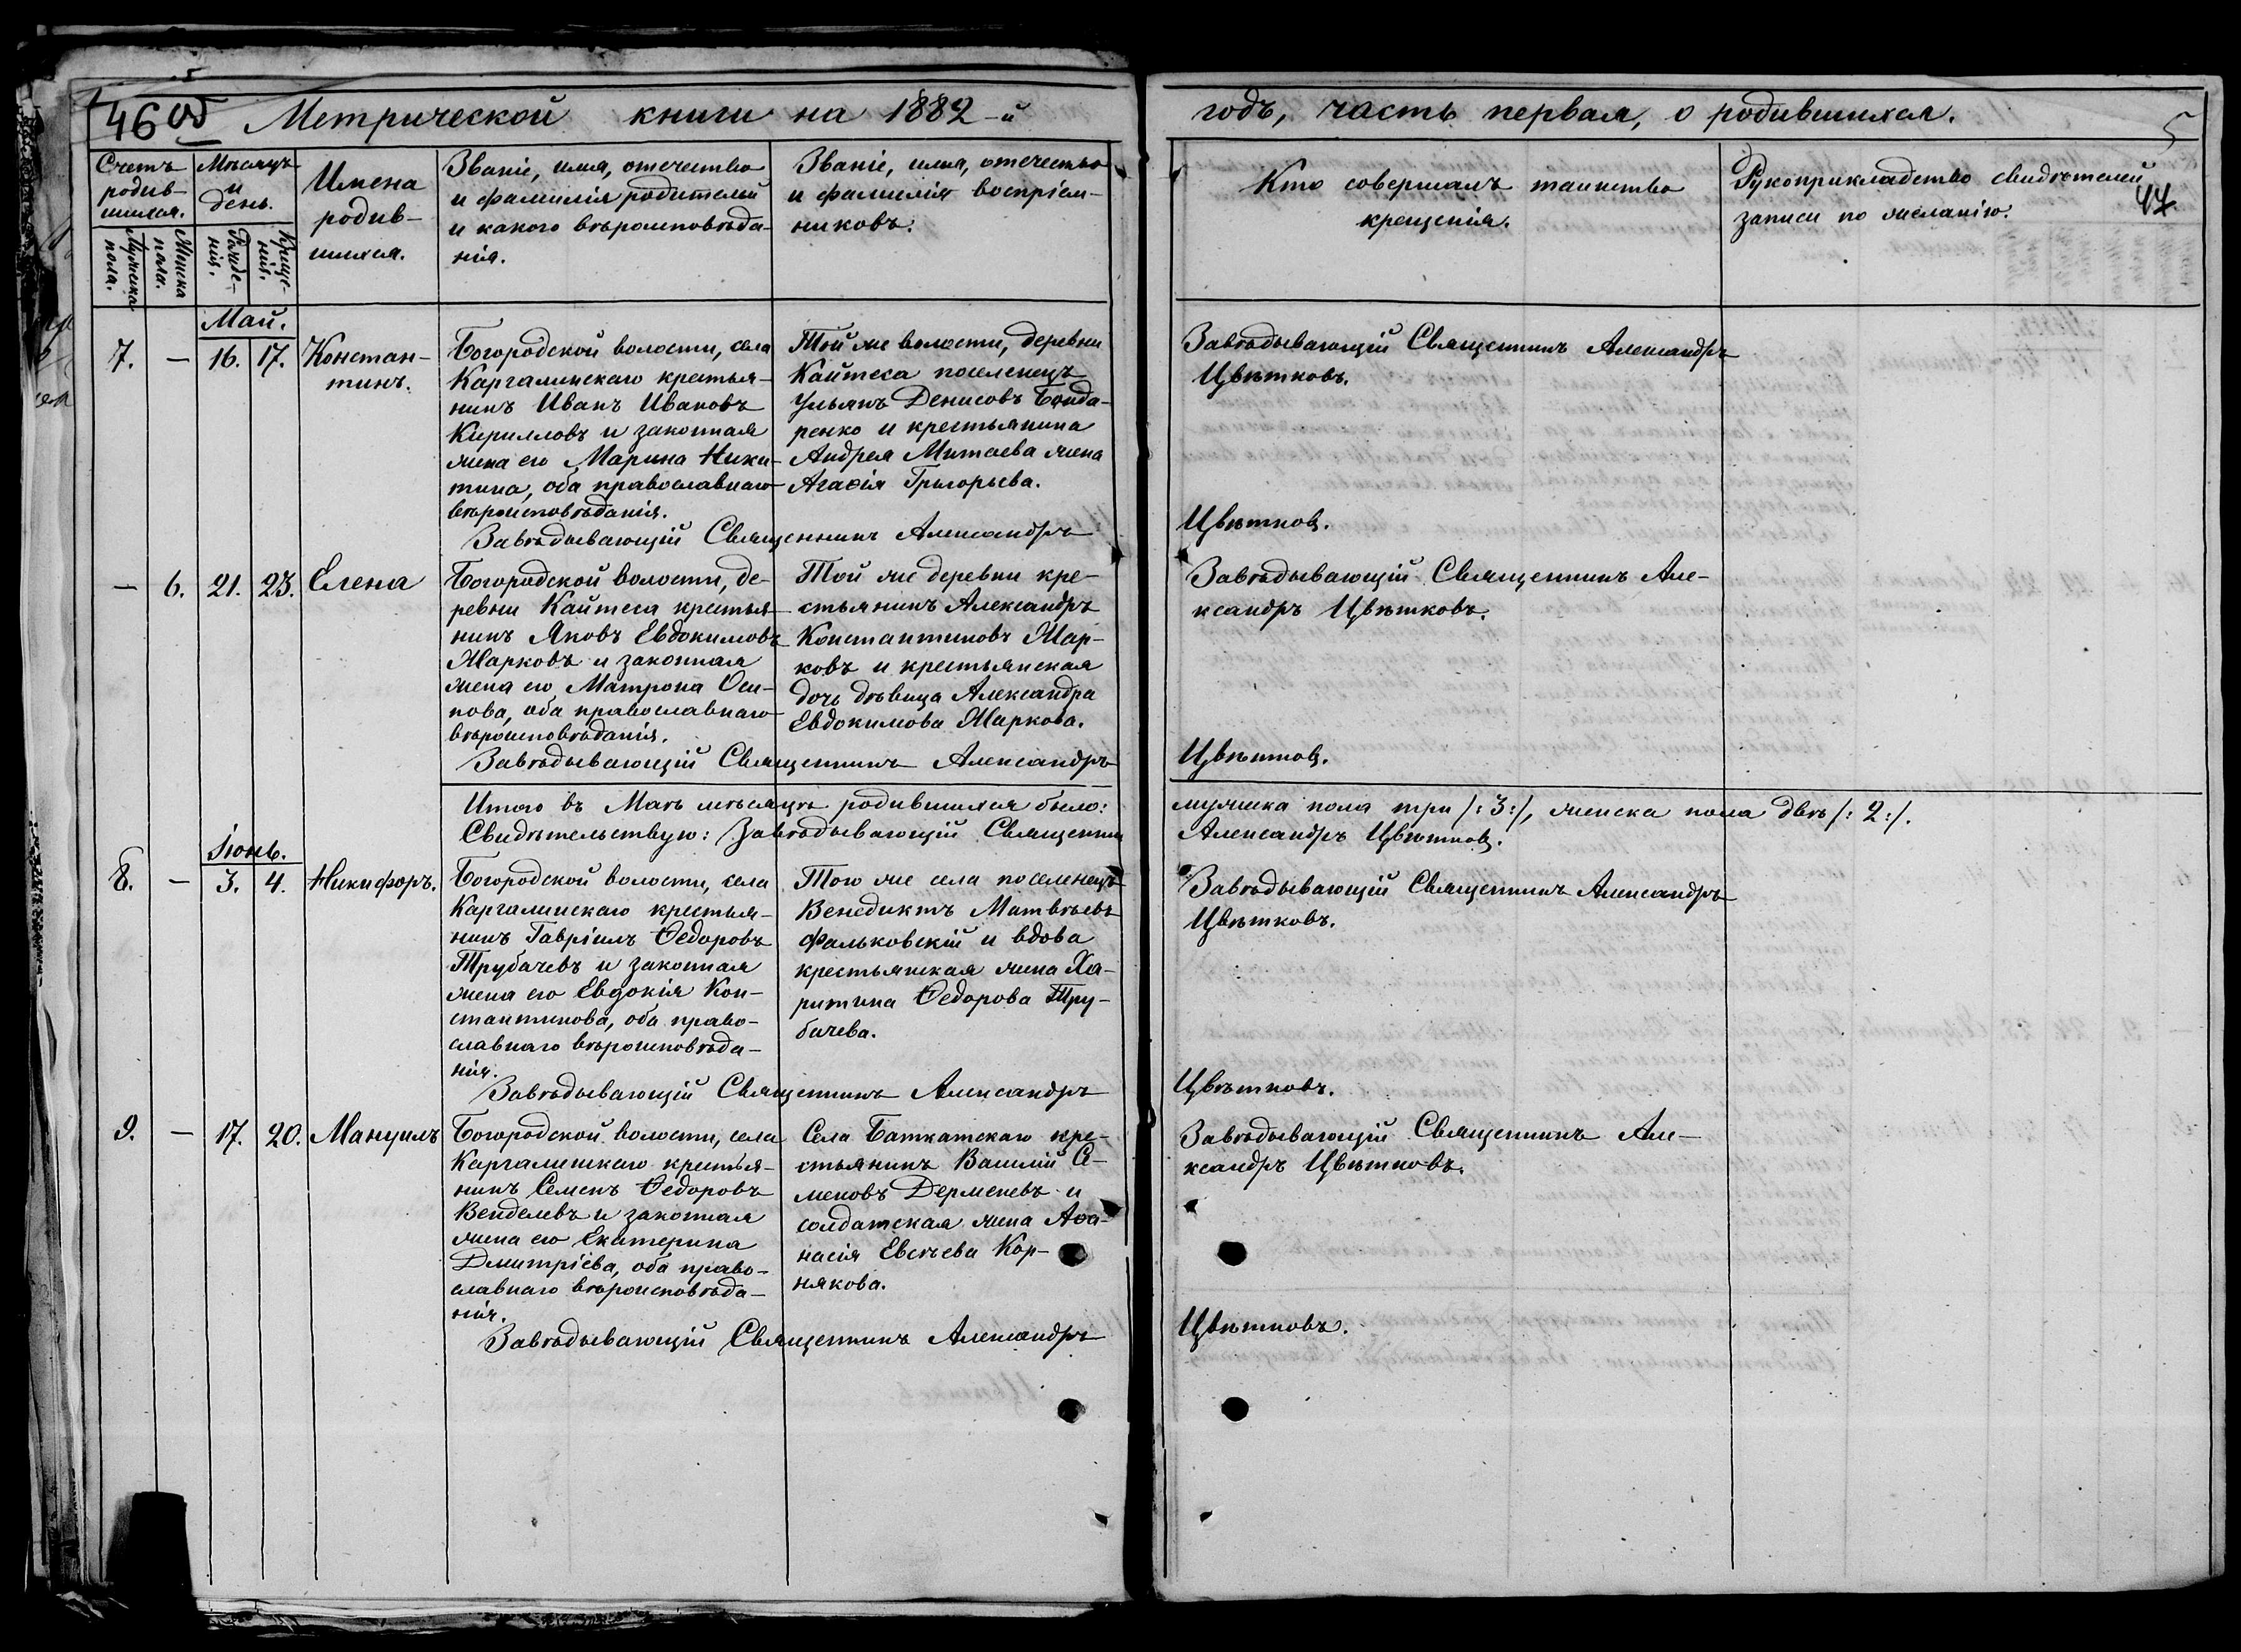 46 об Метрической книги на 1882-й годъ, часть первая, о родившихся.
5
47
Счетъ родив-шихся.
Мужска пола.
Женска пола.
Мѣсяцъ и день.
Рожде-нія.
Креще-нія.
Имена
родив-
шихся.
Званіе, имя, отечество
и фамилія родителей
и какого вѣроисповѣда-
нія.
Званіе, имя, отечество
и фамилія воспріем-
никовъ.
Кто совершалъ таинство
крещенія.
Рукоприкладство свидѣтелей
записи по желанію.
Май.
7. — 16. 17. Констан-
тинъ.
Богородской волости, села
Каргалинскаго крестья-
нинъ Иванъ Ивановъ
Кирилловъ и законная
жена его Марина Ники-
тина, оба православнаго
вѣроисповѣданія.
Той же волости, деревни
Кайтеса поселенецъ
Ульянъ Денисовъ Бонда-
ренко и крестьянина
Андрея Митаева жена
Агаѳія Григорьева.
Завѣдывающій Священникъ Александръ
Цвѣтковъ.
Завѣдывающій Священникъ Александръ Цвѣтковъ.
— 6. 21. 23. Елена
Богородской волости, де-
ревни Кайтеса крестья-
нинъ Яковъ Евдокимовъ
Марковъ и законная
жена его Матрона Оси-
пова, оба православнаго
вѣроисповѣданія.
Той же деревни кре-
стьянинъ Александръ
Константиновъ Мар-
ковъ и крестьянская
дочь дѣвица Александра
Евдокимова Маркова.
Завѣдывающій Священникъ Але-
ксандръ Цвѣтковъ.
Завѣдывающій Священникъ Александръ Цвѣтковъ.
Итого въ Маѣ мѣсяцѣ родившихся было: мужска пола три /:3:/, женска пола двѣ /:2:/.
Свидѣтельствую: Завѣдывающій Священникъ Александръ Цвѣтковъ.
Іюнь.
8. — 3. 4. Никифоръ.
Богородской волости, села
Каргалинскаго крестья-
нинъ Гавріилъ Ѳедоровъ
Трубачевъ и законная
жена его Евдокія Кон-
стантинова, оба право-
славнаго вѣроисповѣда-
нія.
Того же села поселенецъ
Венедиктъ Матвѣевъ
Фальковскій и вдова
крестьянская жена Ха-
ритина Ѳедорова Тру-
бачева.
Завѣдывающій Священникъ Александръ
Цвѣтковъ.
Завѣдывающій Священникъ Александръ Цвѣтковъ.
9. — 17. 20. Мануилъ
Богородской волости, села
Каргалинскаго крестья-
нинъ Семенъ Ѳедоровъ
Венделевъ и законная
жена его Екатерина
Дмитріева, оба право-
славнаго вѣроисповѣда-
нія.
Села Баткатскаго кре-
стьянинъ Василій Се-
меновъ Дерменевъ и
солдатская жена Аѳа-
насія Евсѣева Кор-
някова.
Завѣдывающій Священникъ Але-
ксандръ Цвѣтковъ.
Завѣдывающій Священникъ Александръ Цвѣтковъ.